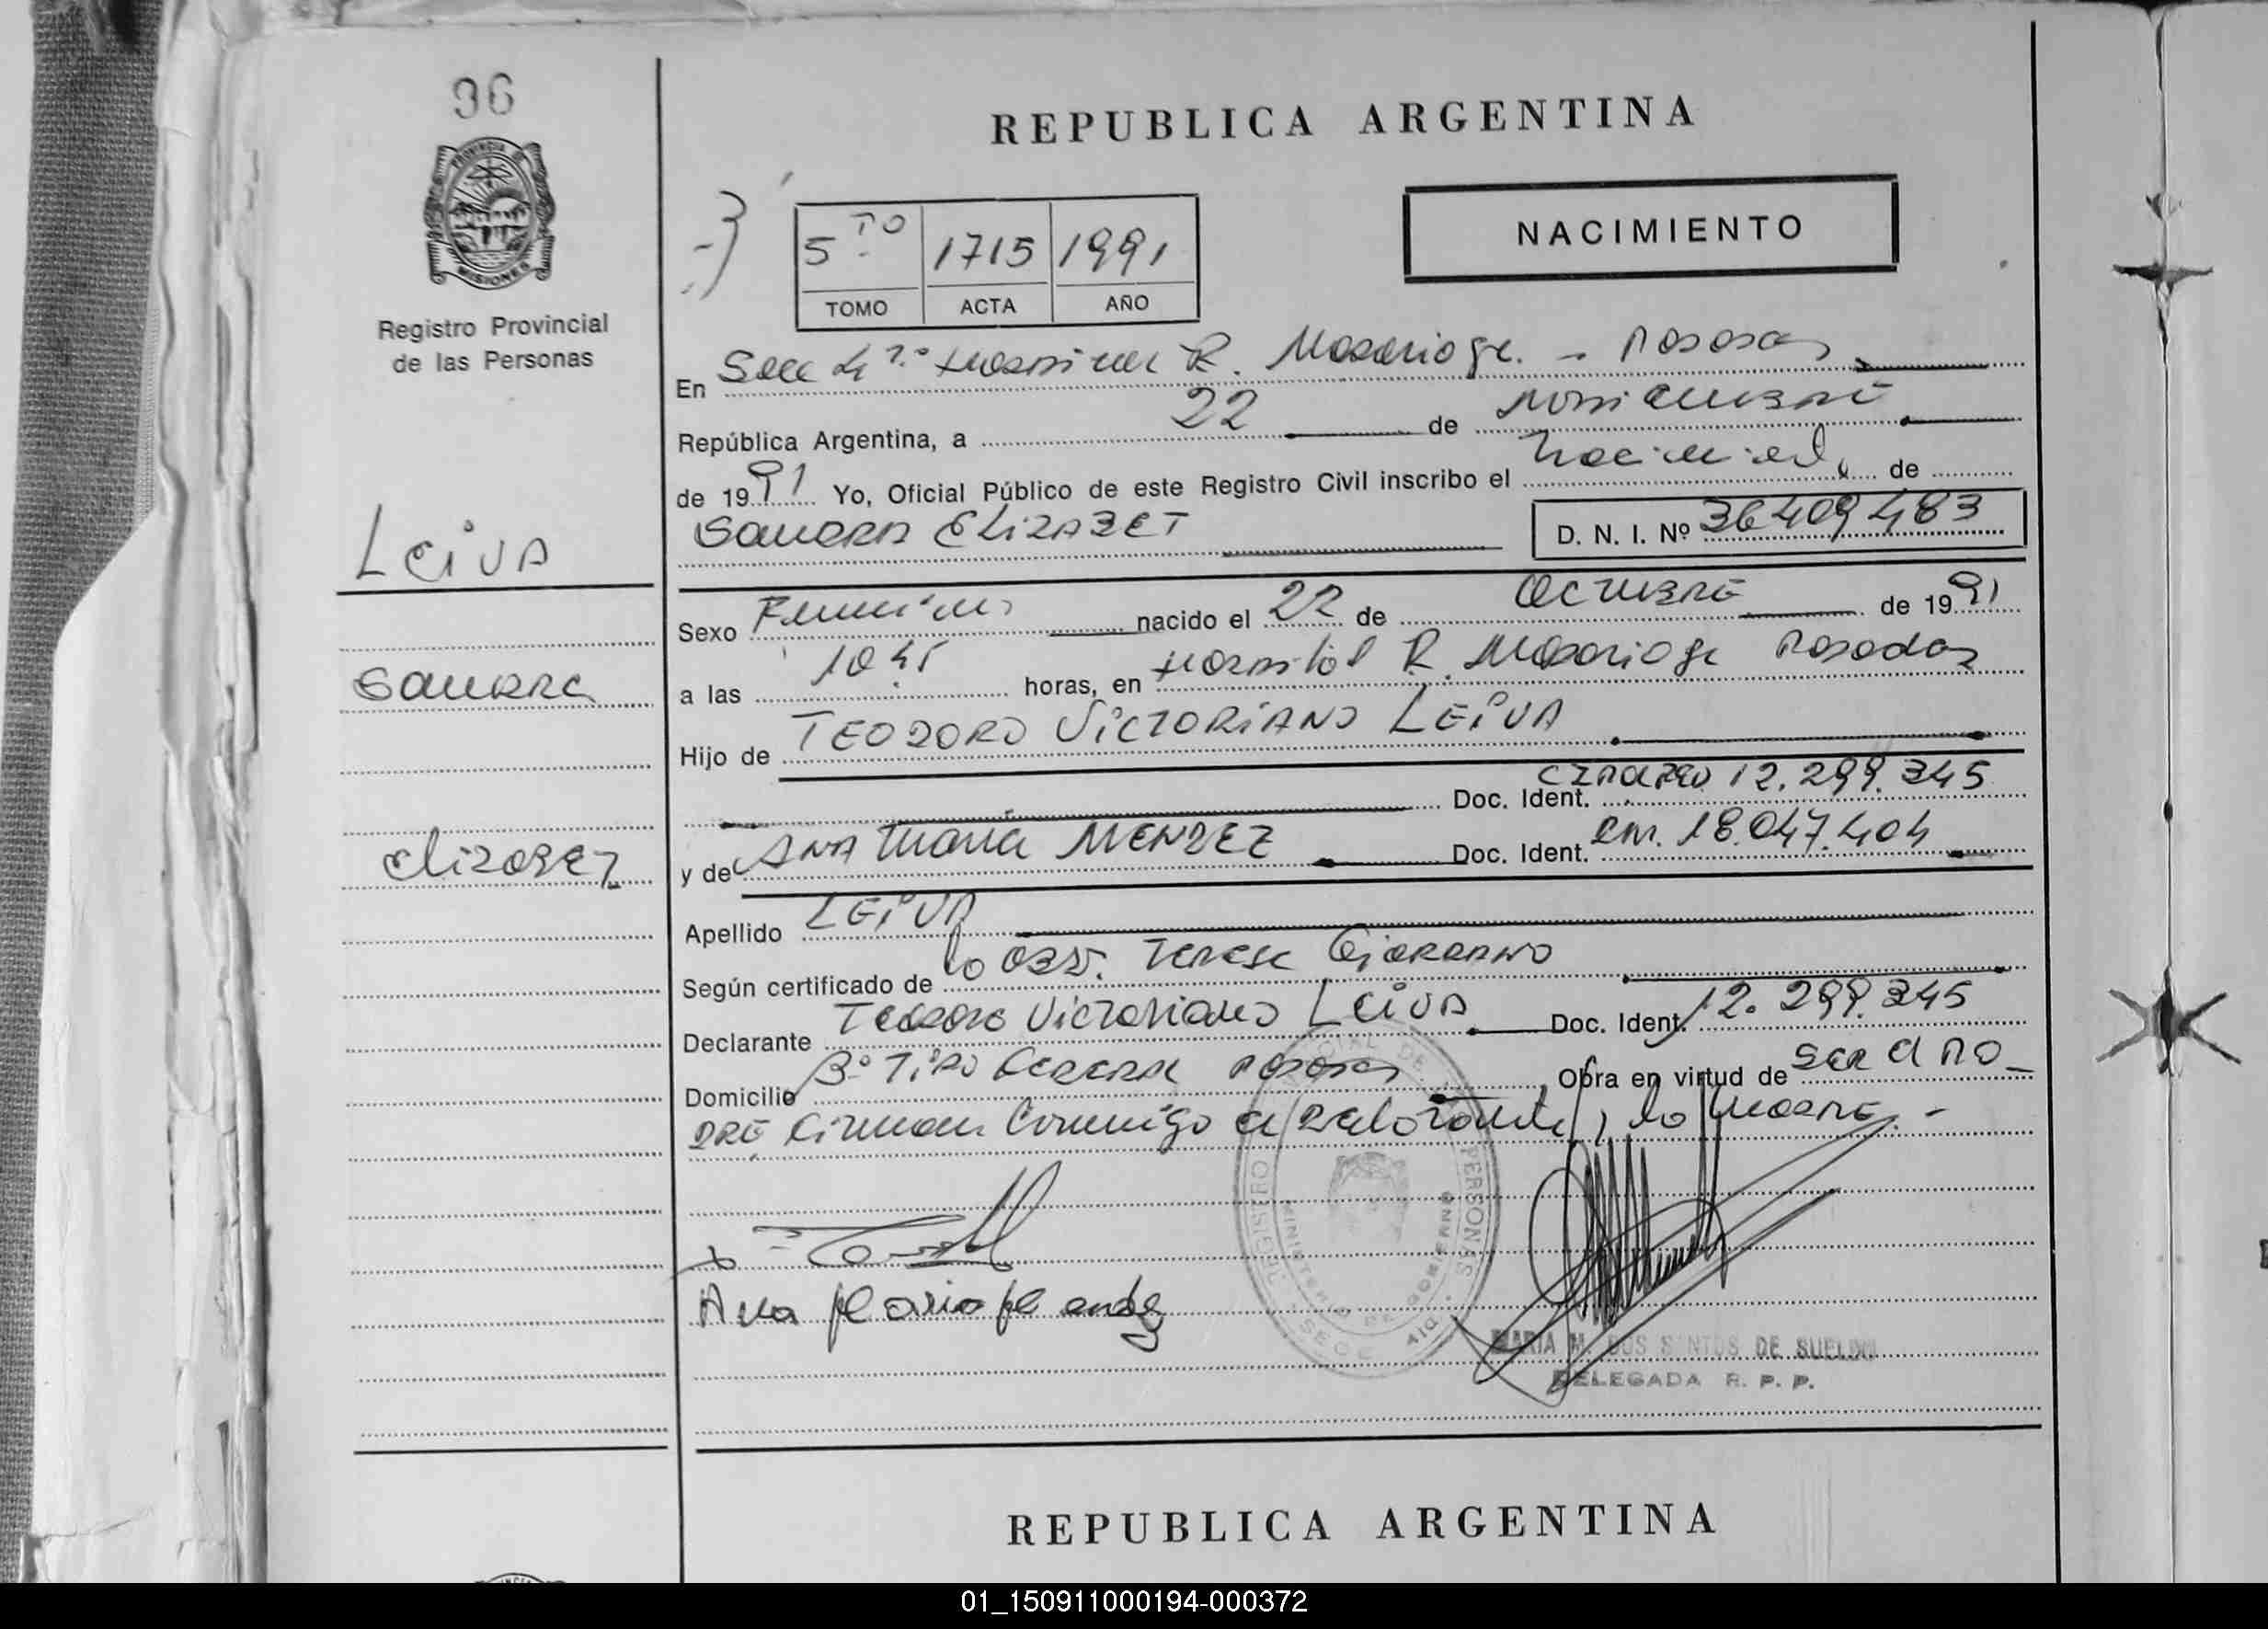 96
PROVINCIA DE
MISIONES
Registro Provincial
de las Personas
REPUBLICA ARGENTINA
NACIMIENTO
5TO 1715 1991
TOMO ACTA AÑO
En Secc Hospital R. Madariaga. - Posadas
República Argentina, a 22 de Noviembre
de 1991 Yo, Oficial Público de este Registro Civil inscribo el Nacimiento de
Leiva
Sandra Elizabet D. N. I. Nº 36409483
Sexo Femenino nacido el 22 de Octubre de 1991
Sandra
a las 10.45 horas, en Hospital R. Madariaga Posadas
Hijo de TEODORO VICTORIANO LEIVA
Doc. Ident. 12.299.345
Elizabet
y de ANA Maria MENDEZ Doc. Ident. 18.047.404
Apellido LEIVA
Según certificado de la Obst. Teresa Giordano
Declarante Teodoro Victoriano Leiva Doc. Ident. 12.299.345
Domicilio Bº Tiro Federal Posadas Obra en virtud de ser el PA-
DRE Firman Conmigo el declarante y la Madre.-
Ana Maria Mendez
REGISTRO PROVINCIAL DE PERSONAS
MINISTERIO DE GOBIERNO
SEDE
MARIA M. DOS SANTOS DE SUELDO
DELEGADA R. P. P.
REPUBLICA ARGENTINA
01_150911000194-000372